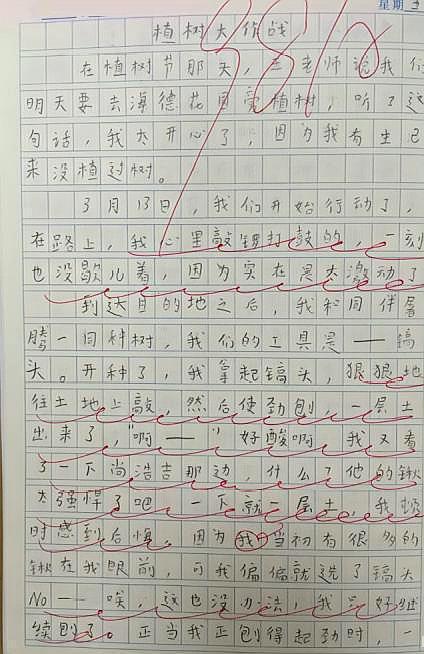 星期
植树大作战
在植树节那天，王老师说我们
明天要去海德花园旁植树，听了这
句话，我太开心了，因为我有生已
来没植过树。
3月13日，我们开始行动了，
在路上，我心里敲锣打鼓的，一刻
也没歇儿着，因为实在是太激动了
到达目的地之后，我和同伴
腾一同种树，我们的工具是——镐
头。开种了，我拿起镐头，狠狠地
往土地上敲，然后使劲刨，一层土
出来了，"啊——"好酸啊，我又看
了一下尚浩吉那边，什么？他的锹
太强悍了吧，一下就一层土，我顿
时感到后悔，因为我当初有很多的
锹在我眼前，可我偏偏就选了镐头
No——唉，这也没办法，我只好继
续刨了。正当我正刨得起劲时，一